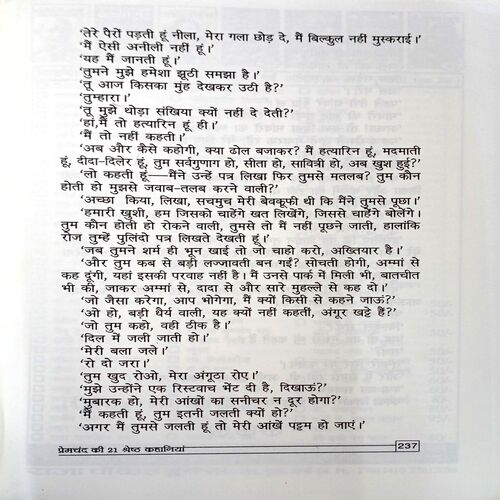 'तेरे पैरों पड़ती हूं नीला, मेरा गला छोड़ दे, मैं बिल्कुल नहीं मुस्कराई।'
'मैं ऐसी अनीली नहीं हूं।'
'यह मैं जानती हूं।'
'तुमने मुझे हमेशा झूठी समझा है।'
'तू आज किसका मुंह देखकर उठी है?'
'तुम्हारा।'
'तू मुझे थोड़ा संखिया क्यों नहीं दे देती?'
'हां,मैं तो हत्यारिन हूं ही।'
'मैं तो नहीं कहती।'
'अब और कैसे कहोगी, क्या ढोल बजाकर? मैं हत्यारिन हूं, मदमाती
हूं, दीदा-दिलेर हूं, तुम सर्वगुणाग हो, सीता हो, सावित्री हो, अब खुश हुईं?'
'लो कहती हूं—मैंने उन्हें पत्र लिखा फिर तुमसे मतलब? तुम कौन
होती हो मुझसे जवाब-तलब करने वाली?'
'अच्छा किया, लिखा, सचमुच मेरी बेवकूफी थी कि मैंने तुमसे पूछा।'
'हमारी खुशी, हम जिसको चाहेंगे खत लिखेंगे, जिससे चाहेंगे बोलेंगे।
तुम कौन होती हो रोकने वाली, तुमसे तो मैं नहीं पूछने जाती, हालांकि
रोज तुम्हें पुलिंदो पत्र लिखते देखती हूं।'
'जब तुमने शर्म ही भून खाई तो जो चाहो करो, अख्तियार है।'
'और तुम कब से बड़ी लज्जावती बन गईं? सोचती होगी, अम्मां से
कह दूंगी, यहां इसकी परवाह नहीं है। मैं उनसे पार्क में मिली भी, बातचीत
भी की, जाकर अम्मां से, दादा से और सारे मुहल्ले से कह दो।'
'जो जैसा करेगा, आप भोगेगा, मैं क्यों किसी से कहने जाऊं?'
'ओ हो, बड़ी धैर्य वाली, यह क्यों नहीं कहती, अंगूर खट्टे हैं?'
'जो तुम कहो, वही ठीक है।'
'दिल में जली जाती हो।'
'मेरी बला जले।'
'रो दो जरा।'
'तुम खुद रोओ, मेरा अंगूठा रोए।'
'मुझे उन्होंने एक रिस्टवाच भेंट दी है, दिखाऊं?'
'मुबारक हो, मेरी आंखों का सनीचर न दूर होगा?'
'मैं कहती हूं, तुम इतनी जलती क्यों हो?'
'अगर मैं तुमसे जलती हूं तो मेरी आंखें पट्टम हो जाएं।'
प्रेमचंद की 21 श्रेष्ठ कहानियां 237